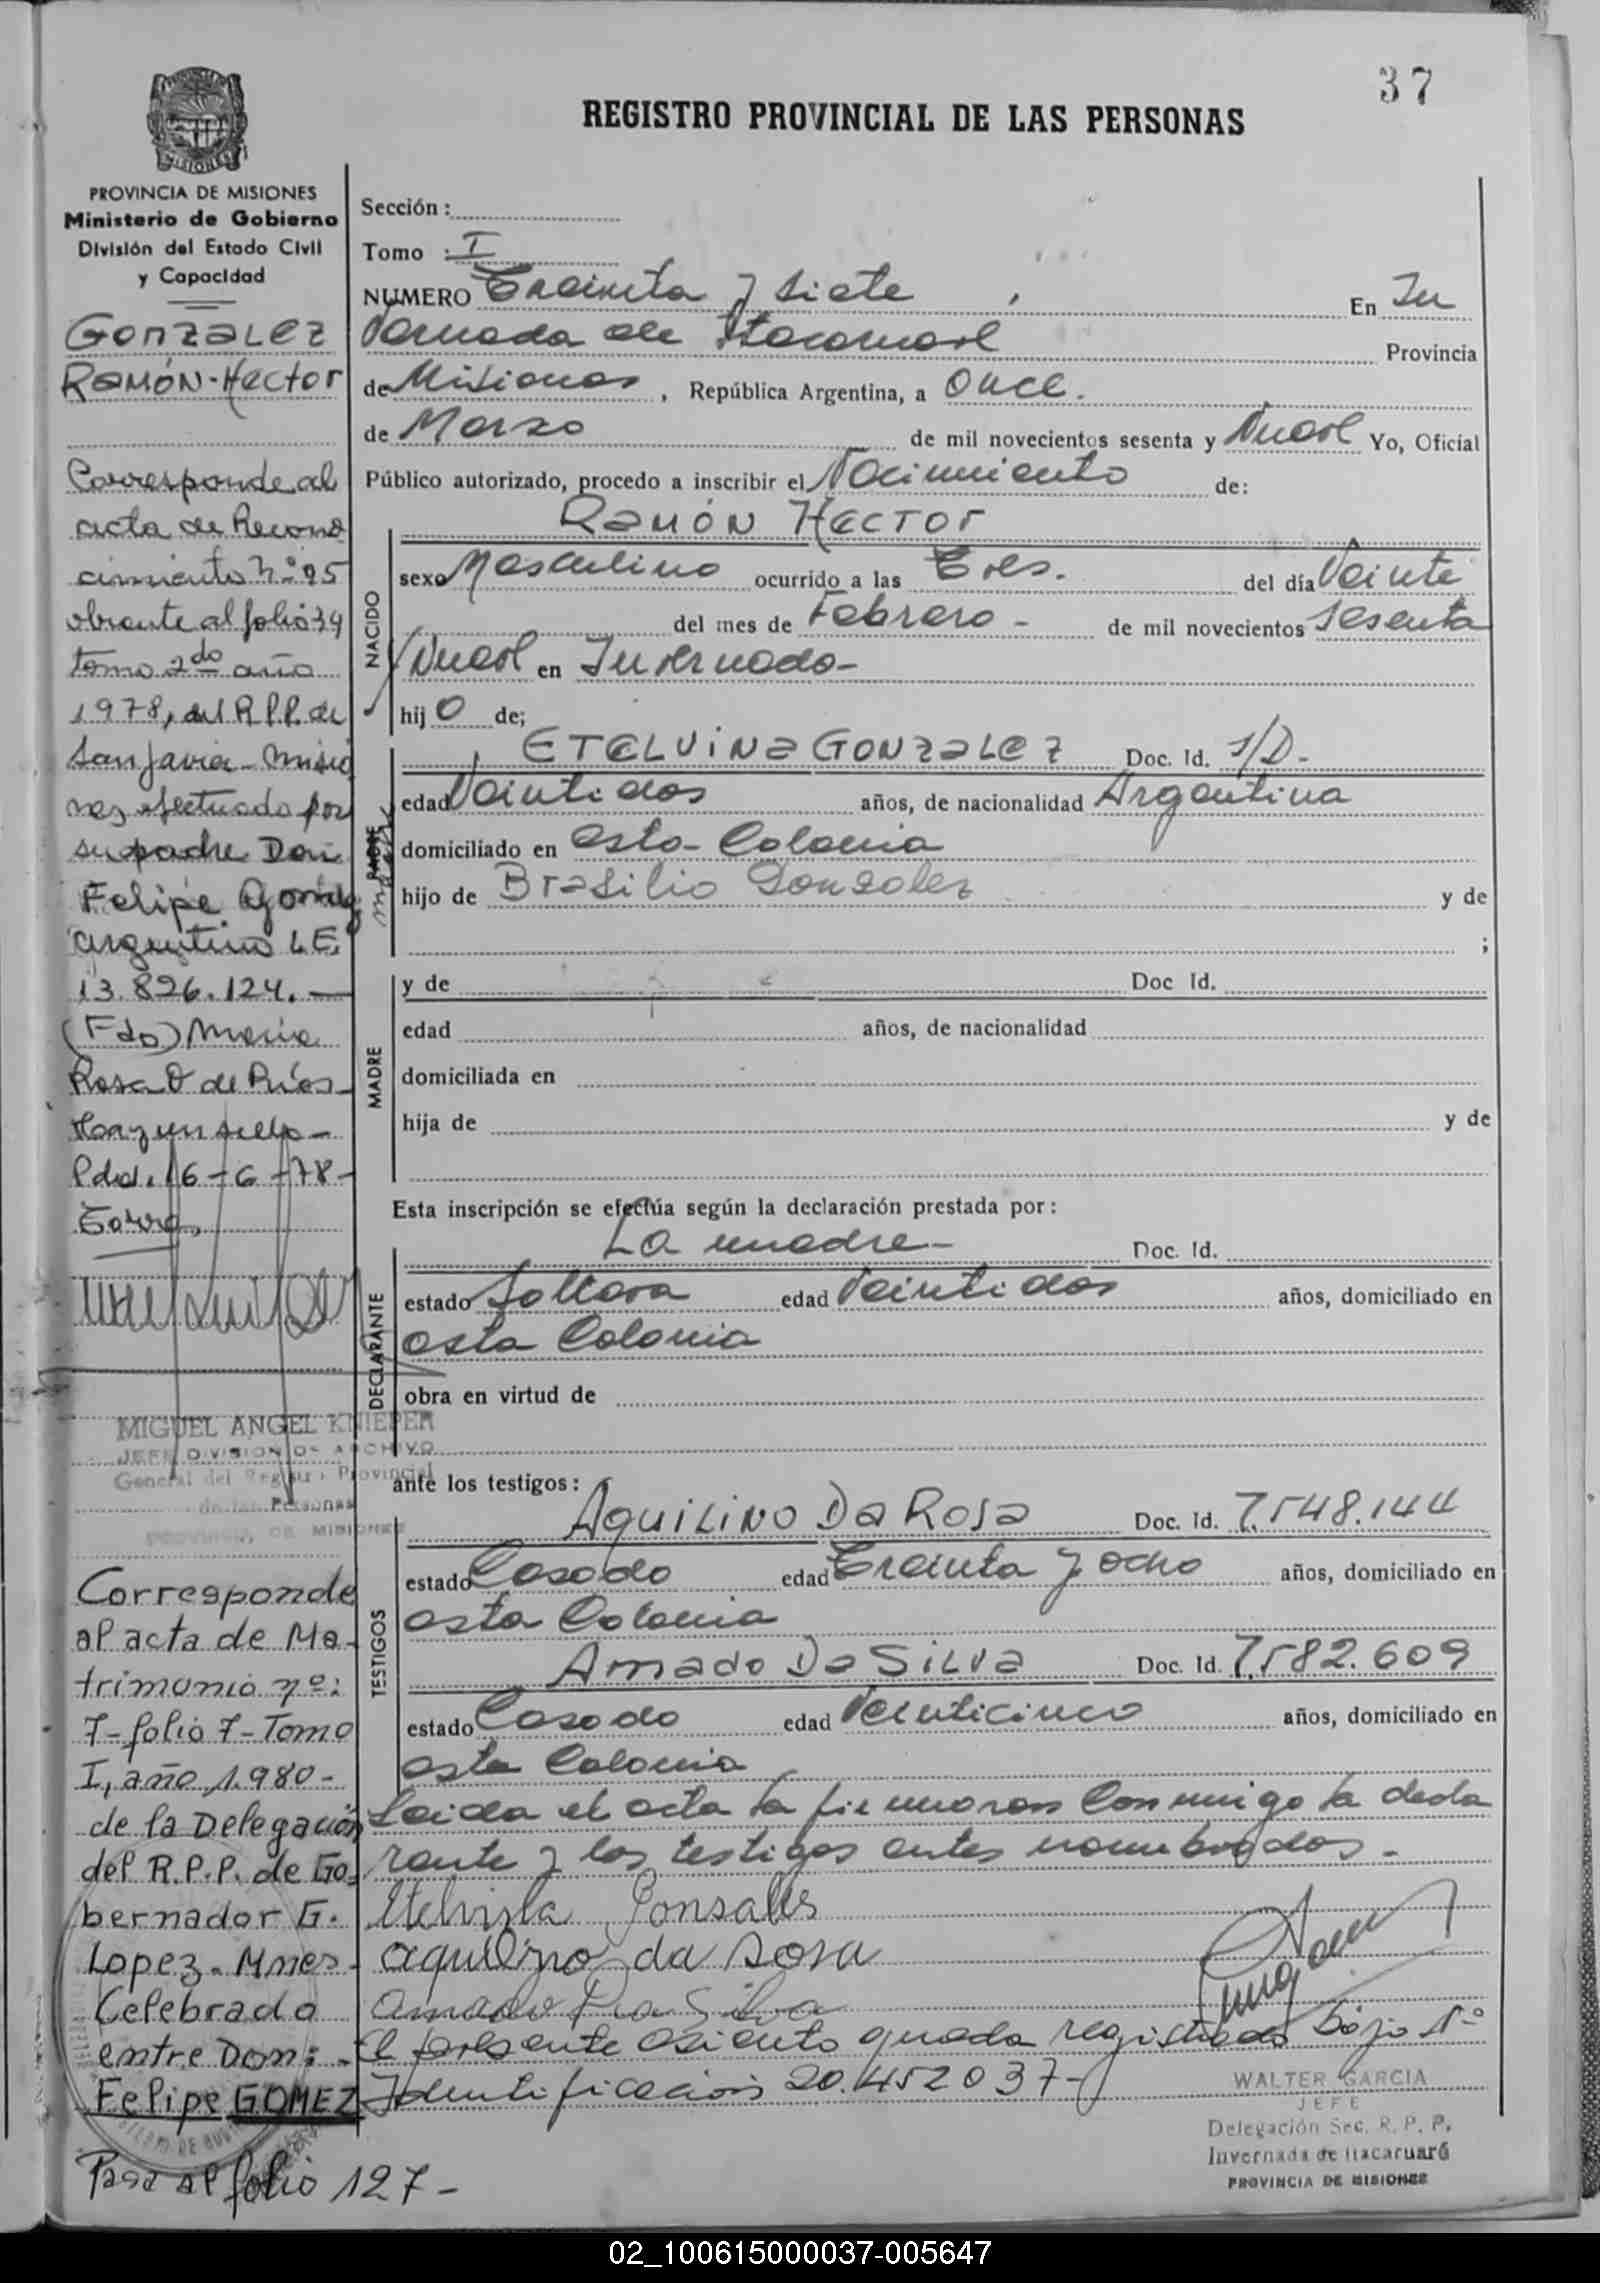 37
REGISTRO PROVINCIAL DE LAS PERSONAS
MISIONES
PROVINCIA DE MISIONES
Ministerio de Gobierno
División del Estado Civil
y Capacidad
Gonzalez
Ramón-Hector
Corresponde al
acta de Recono
cimiento nº 95
obrante al folio 34
tomo 2do año
1978, del R.P.P. de
San Javier - Misio
nes efectuado por
su padre Don
Felipe Gomez
argentino L.E.
13.826.124.—
(Fdo) Maria
Rosa O de Rios -
Hay un sello -
Pdas. 16-6-78-
MIGUEL ANGEL KNIEPER
JEFE DIVISION DE ARCHIVO
General del Registro Provincial
de las Personas
PROVINCIA DE MISIONES
Corresponde
al acta de Ma-
trimonio nº:
7-folio 7-Tomo
I, año 1.980-
de la Delegación
del R.P.P. de Go-
bernador G.
Lopez - Mnes-
Celebrado
entre Don: -
Felipe GOMEZ
Pasa al folio 127-
Sección:
Tomo : I
NUMERO Treinta y siete , En In
vernada de Itacaruaré Provincia
de Misiones, República Argentina, a Once.
de Marzo de mil novecientos sesenta y Nueve Yo, Oficial
Público autorizado, procedo a inscribir el Nacimiento de:
NACIDO
Ramón Hector
sexo Masculino ocurrido a las Tres. del día Veinte
del mes de Febrero - de mil novecientos sesenta
Nueve en Invernada-
hij o de;
PADRE
madre
Etelvina Gonzalez Doc. Id. S/D-
edad Veintidos años, de nacionalidad Argentina
domiciliado en esta- Colonia
hijo de Brasilio Gonzalez y de
;
MADRE
y de Doc Id.
edad años, de nacionalidad
domiciliada en
hija de y de
Esta inscripción se efectúa según la declaración prestada por:
DECLARANTE
La madre- Doc. Id.
estado Soltera edad Veintidos años, domiciliado en
esta Colonia
obra en virtud de
ante los testigos:
TESTIGOS
Aquilino Da Rosa Doc. Id. 7.548.144
estado Casado edad Treinta y ocho años, domiciliado en
esta Colonia
Amado Da Silva Doc. Id. 7.582.609
estado Casado edad Veinticinco años, domiciliado en
esta Colonia
Leida el acta la firmaron Conmigo la decla
rante y los testigos antes nombrados.-
Etelvina Gonsales
aquilino da Rosa
Amado Da Silva
El presente asiento queda registrado bajo Nº
Identificación 20.452037-
WALTER GARCIA
JEFE
Delegación Sec. R. P. P.
Invernada de Itacaruaré
PROVINCIA DE MISIONES
02_100615000037-005647